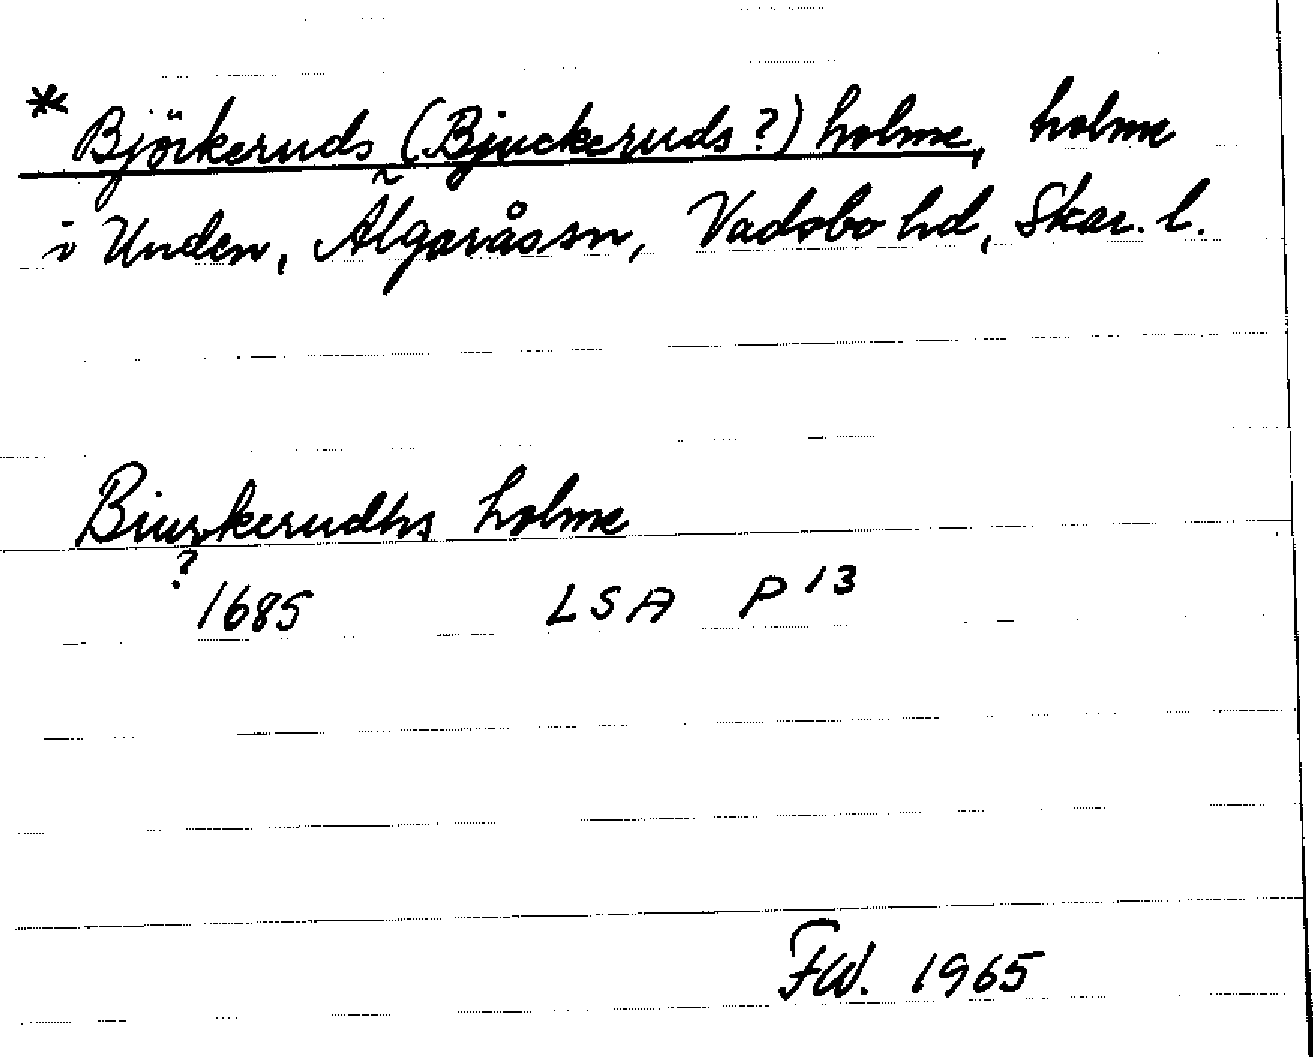 * Björkeruds (Bjuckeruds?) holme, holme
i Unden, Älgarås sn, Vadsbo hd, Skar. l.
Biurkerudhs holme
?
1685 LSA P 13
FW. 1965